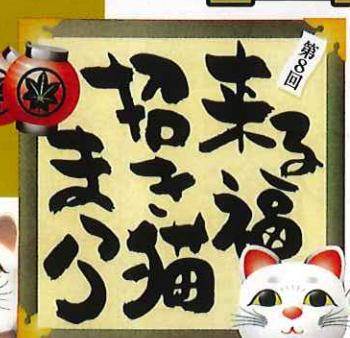 第8回
来る福
招き猫
まつり